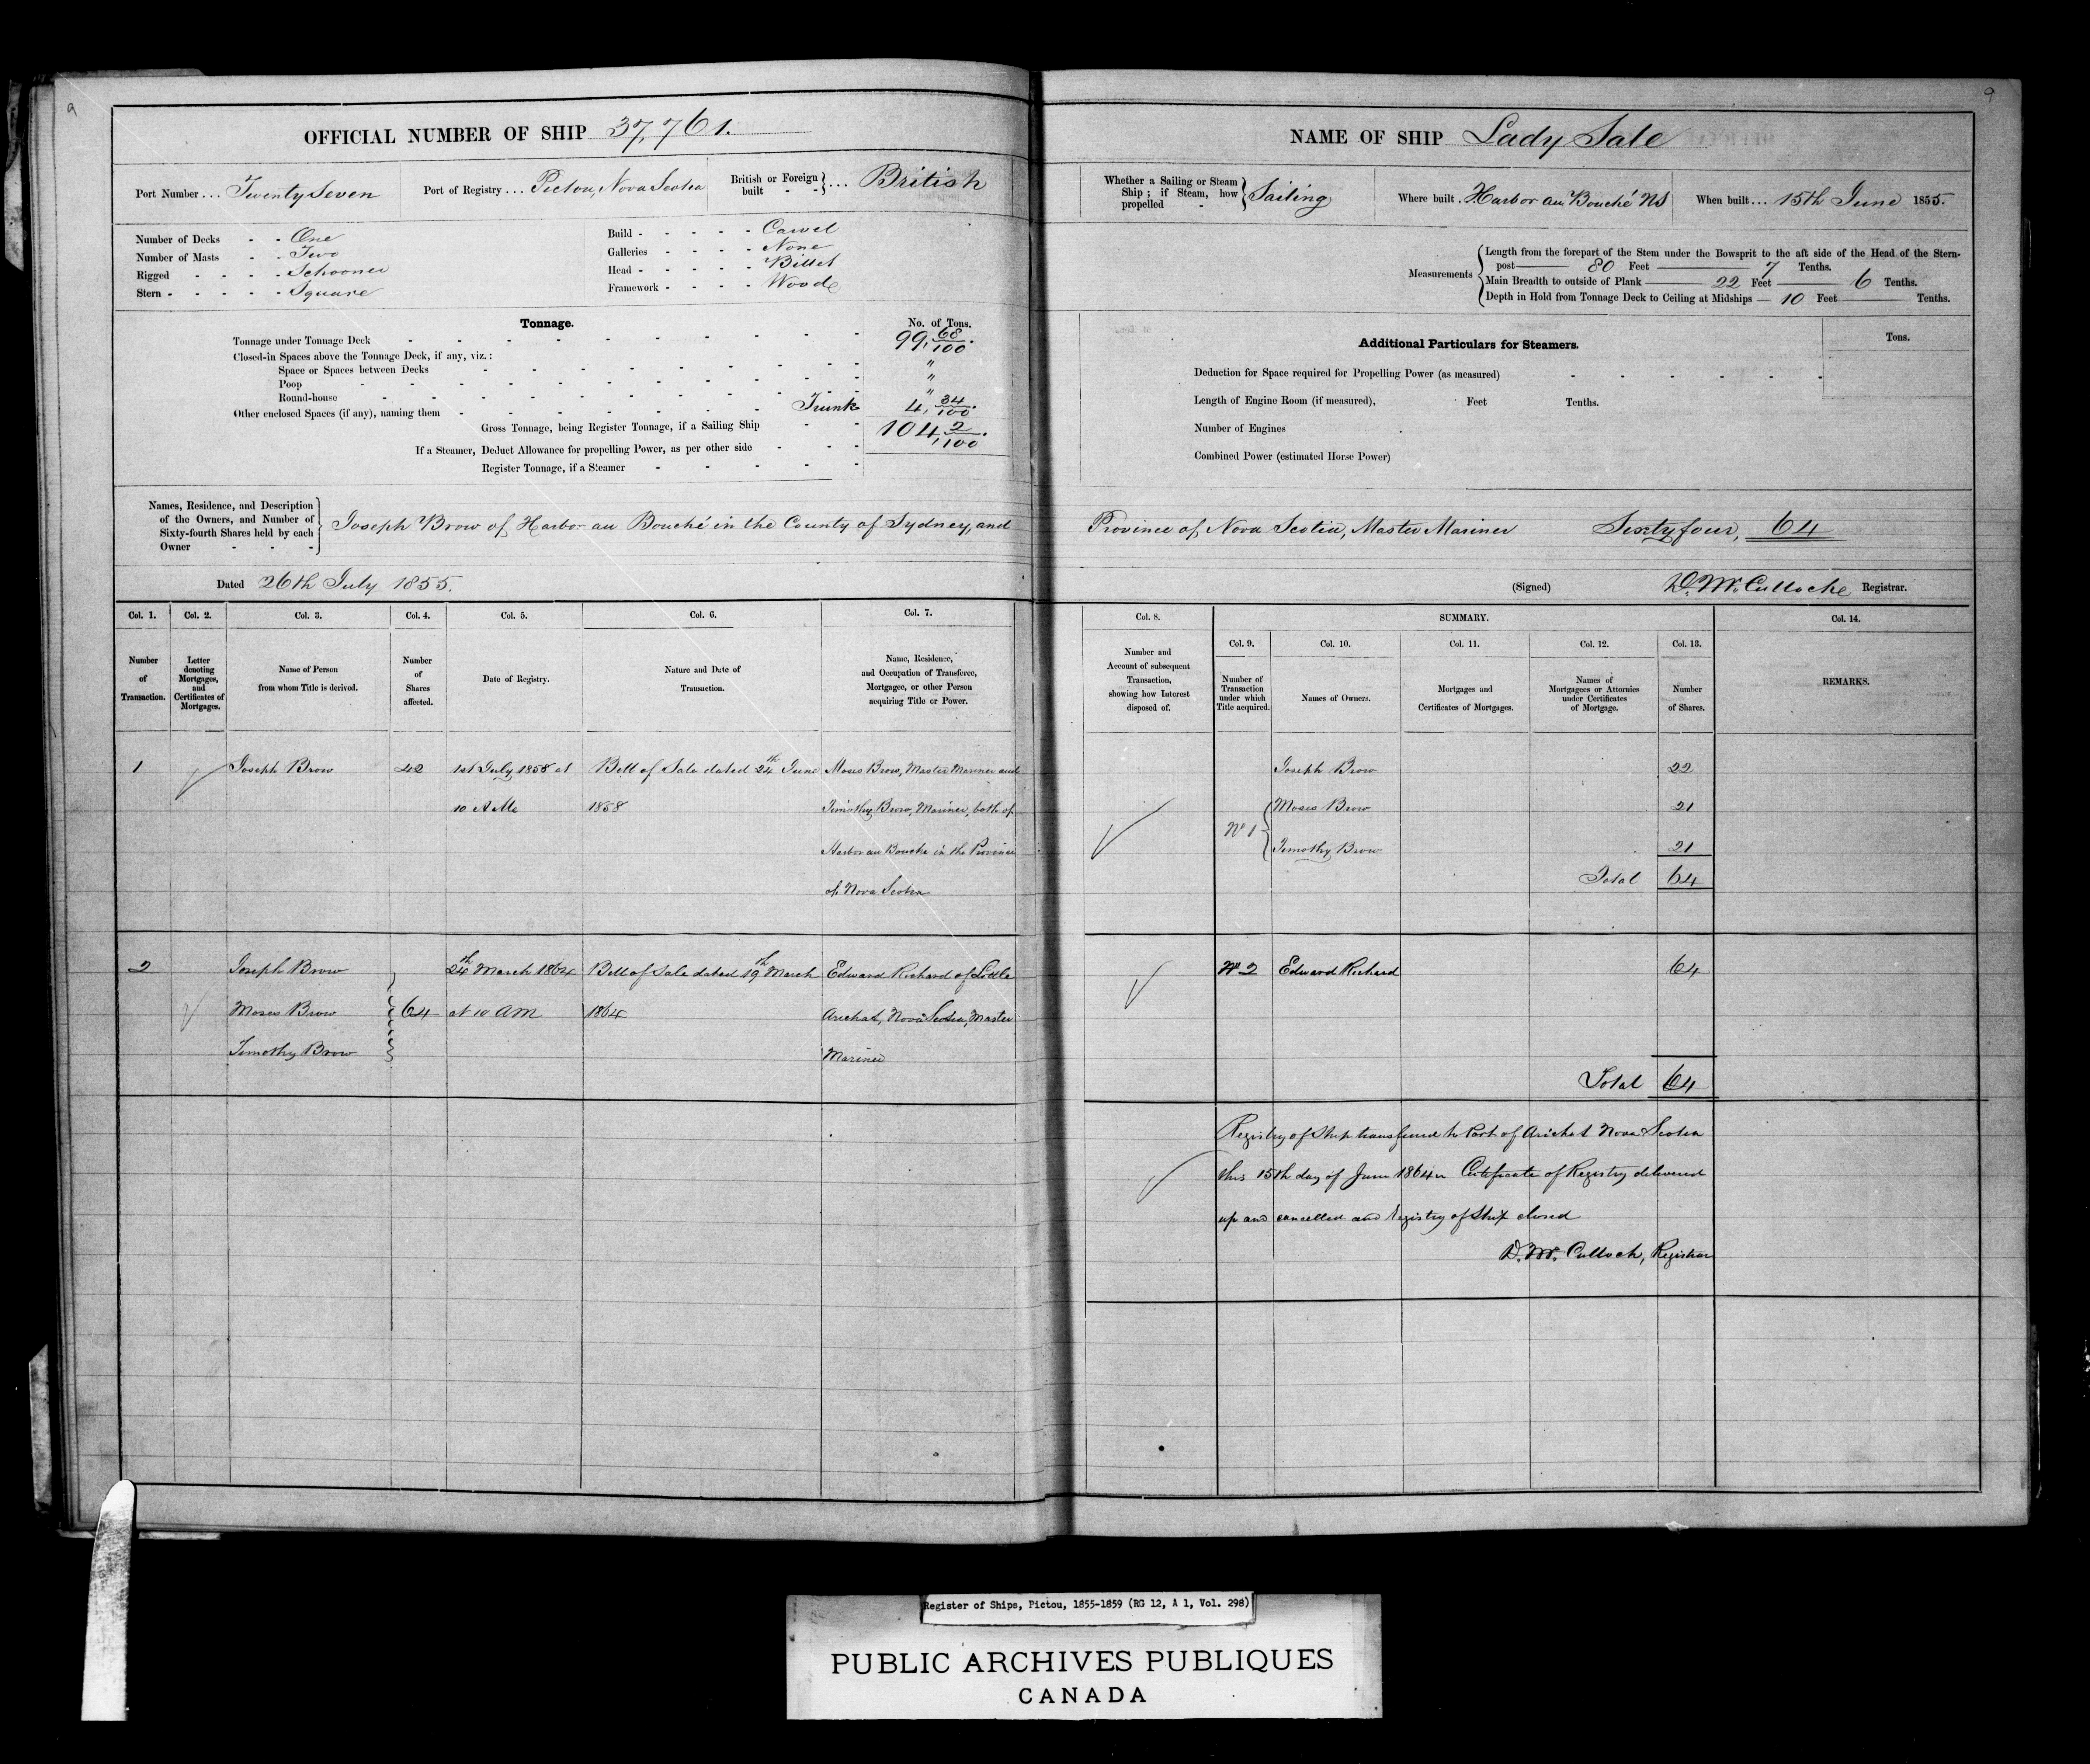 9
OFFICIAL NUMBER OF SHIP 37,761.
Port Number ... Twenty Seven
Port of Registry ... Pictou, Nova Scotia
British or Foreign built - - } ... British
Number of Decks - - One
Number of Masts - - Two
Rigged - - - - Schooner
Stern - - - - - Square
Build - - - - - Carvel
Galleries - - - - None
Head - - - - - Billet
Framework - - - - Wood
Tonnage.
No. of Tons.
Tonnage under Tonnage Deck 99, 68/100.
Closed-in Spaces above the Tonnage Deck, if any, viz.:
Space or Spaces between Decks "
Poop "
Round-house "
Other enclosed Spaces (if any), naming them Trunk 4, 34/100.
Gross Tonnage, being Register Tonnage, if a Sailing Ship 104, 2/100.
If a Steamer, Deduct Allowance for propelling Power, as per other side
Register Tonnage, if a Steamer
Names, Residence, and Description
of the Owners, and Number of
Sixty-fourth Shares held by each
Owner - - -
Joseph Brow of Harbor au Bouché in the County of Sydney, and
Dated 26th July 1855.
Col. 1. Col. 2. Col. 3. Col. 4. Col. 5. Col. 6. Col. 7.
Number of Transaction.
Letter denoting Mortgages, and Certificates of Mortgages.
Name of Person from whom Title is derived.
Number of Shares affected.
Date of Registry.
Nature and Date of Transaction.
Name, Residence, and Occupation of Transferee, Mortgagee, or other Person acquiring Title or Power.
1 Joseph Brow 42 1st July 1858 at Bill of Sale dated 24th June Moses Brow, Master Mariner and
10 AM 1858 Timothy Brow, Mariner, both of
Harbor au Bouche in the Province
of Nova Scotia
2 Joseph Brow 24th March 1864 Bill of Sale dated 19th March Edward Richard of Little
Moses Brow 64 at 10 AM 1864 Arichat, Nova Scotia, Master
Timothy Brow Mariner
9
NAME OF SHIP Lady Sale
Whether a Sailing or Steam Ship; if Steam, how propelled - } Sailing
Where built . Harbor au Bouché NS
When built ... 15th June 1855.
Measurements
Length from the forepart of the Stem under the Bowsprit to the aft side of the Head of the Stern-
post 80 Feet 7 Tenths.
Main Breadth to outside of Plank 22 Feet 6 Tenths.
Depth in Hold from Tonnage Deck to Ceiling at Midships 10 Feet Tenths.
Additional Particulars for Steamers.
Tons.
Deduction for Space required for Propelling Power (as measured)
Length of Engine Room (if measured), Feet Tenths.
Number of Engines
Combined Power (estimated Horse Power)
Province of Nova Scotia, Master Mariner Sixty four, 64
(Signed) D. McCulloche Registrar.
Col. 8.
SUMMARY.
Col. 14.
Col. 9. Col. 10. Col. 11. Col. 12. Col. 13.
Number and Account of subsequent Transaction, showing how Interest disposed of.
Number of Transaction under which Title acquired.
Names of Owners.
Mortgages and Certificates of Mortgages.
Names of Mortgagees or Attornies under Certificates of Mortgage.
Number of Shares.
REMARKS.
Joseph Brow 22
No 1 Moses Brow 21
Timothy Brow 21
Total 64
No 2 Edward Richard 64
Total 64
Registry of Ship transferred to Port of Arichat Nova Scotia
this 15th day of June 1864 Certificate of Registry delivered
up and cancelled and Registry of Ship closed
D. McCulloch, Registrar
Register of Ships, Pictou, 1855-1859 (RG 12, A 1, Vol. 298)
PUBLIC ARCHIVES PUBLIQUES
CANADA